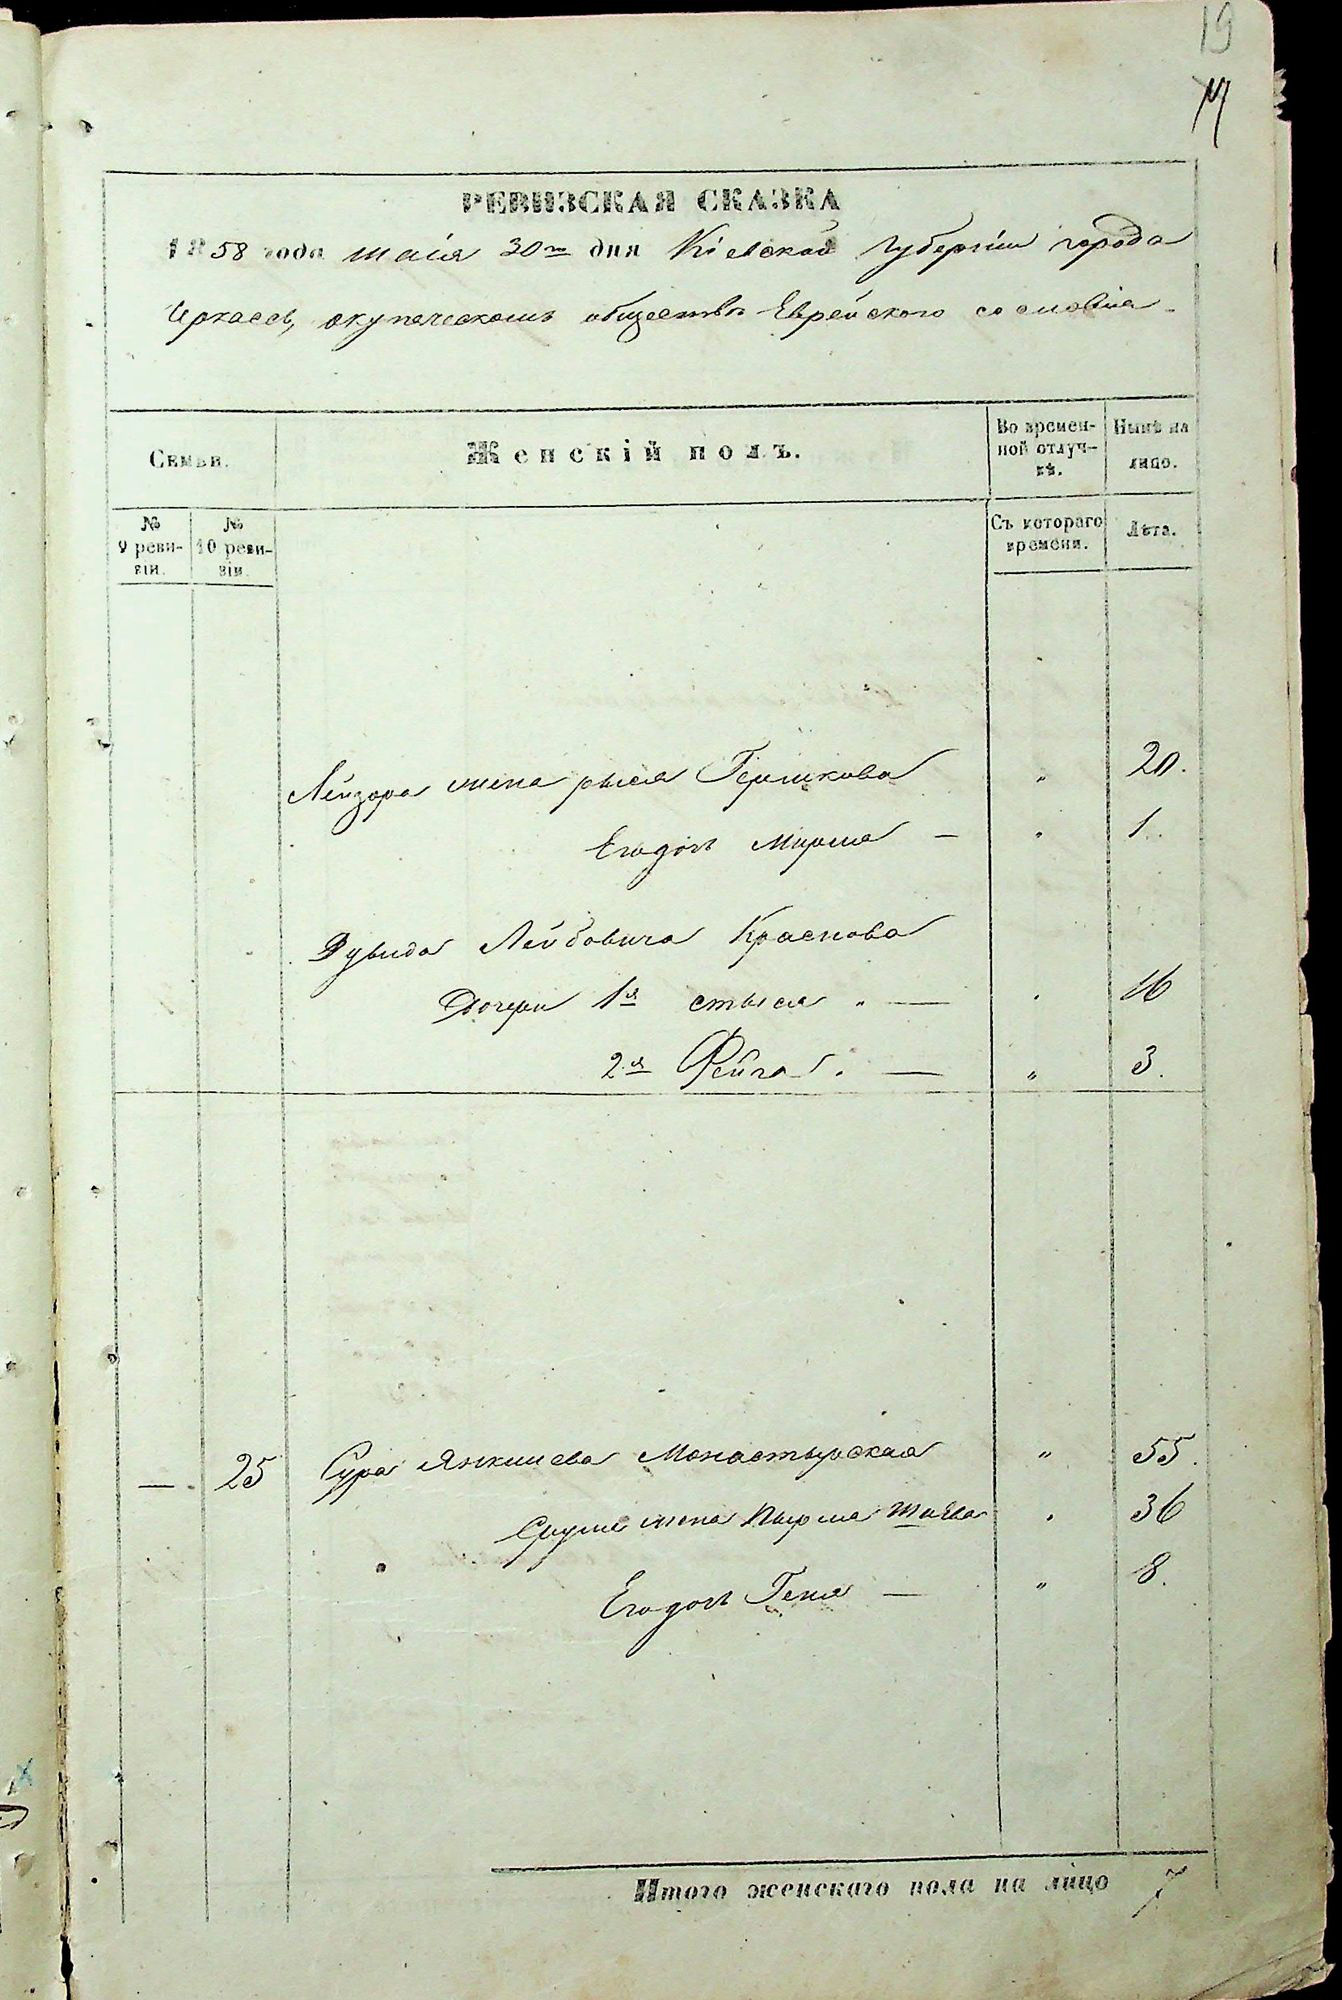 19
РЕВИЗСКАЯ СКАЗКА
1858 года маія 30го дня Кіевской губерніи города
Черкасъ, о купеческомъ обществѣ Еврейского сословія
Семьи.
Женскій полъ.
Во времен-
ной отлуч-
кѣ.
Нынѣ на
лицо.
№
9 реви-
зіи.
№
10 реви-
зіи.
Съ котораго
времени.
Лѣта.
Лейзора жена рыся Гершкова " 20.
Его дочь Мирля — " 1.
Дувида Лейбовича Краснова
Дочери 1я стыся — " 16
2я Фейга — " 3.
— 25 Сура Янкилева Монастырская " 55.
жена Пырля " 36
Его дочь Геня — " 8.
Итого женскаго пола на лицо 7